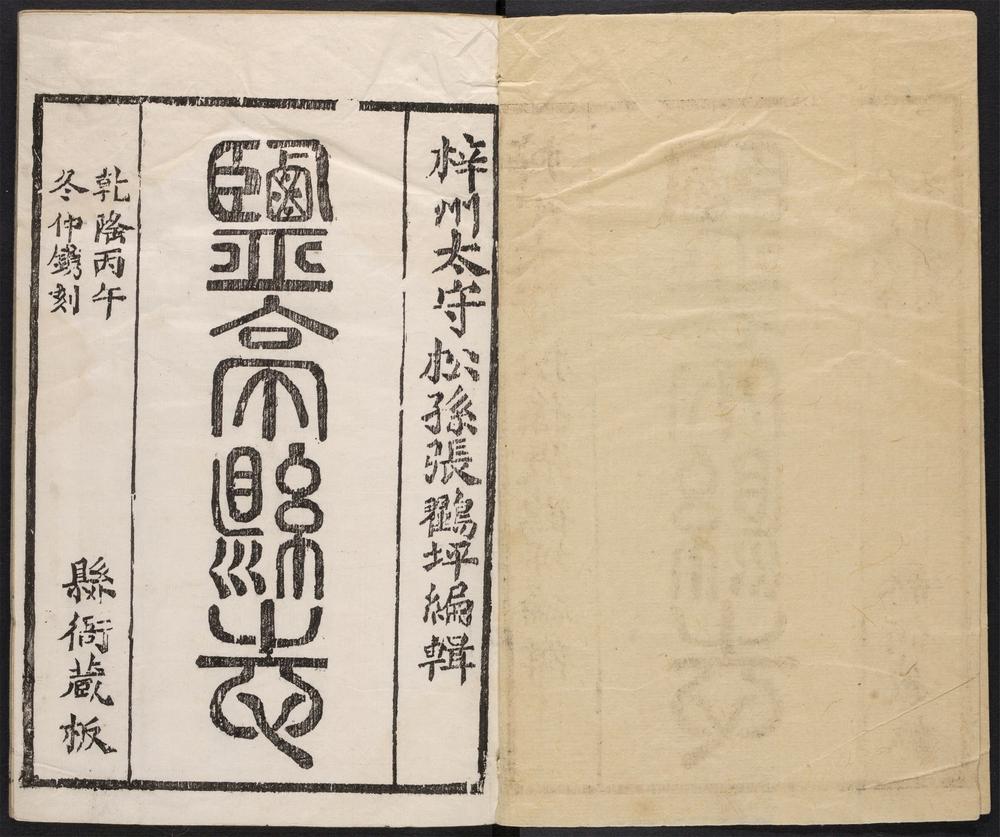 梓州太守松孫張鸐坪編輯
鹽亭縣志
乾隆丙午
冬仲鐫刻
縣衙藏板